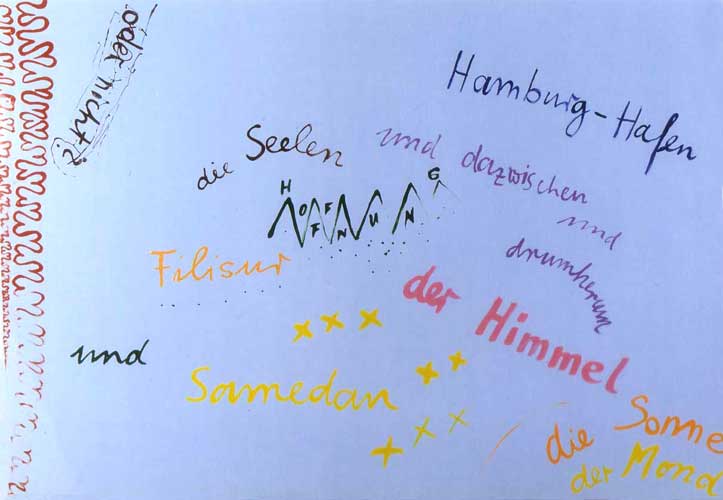 oder nicht?
Hamburg-Hafen
die Seelen
und dazwischen
und
drumherum
HOFFNUNG
Filisur
der Himmel
und
Samedan
die Sonne
der Mond